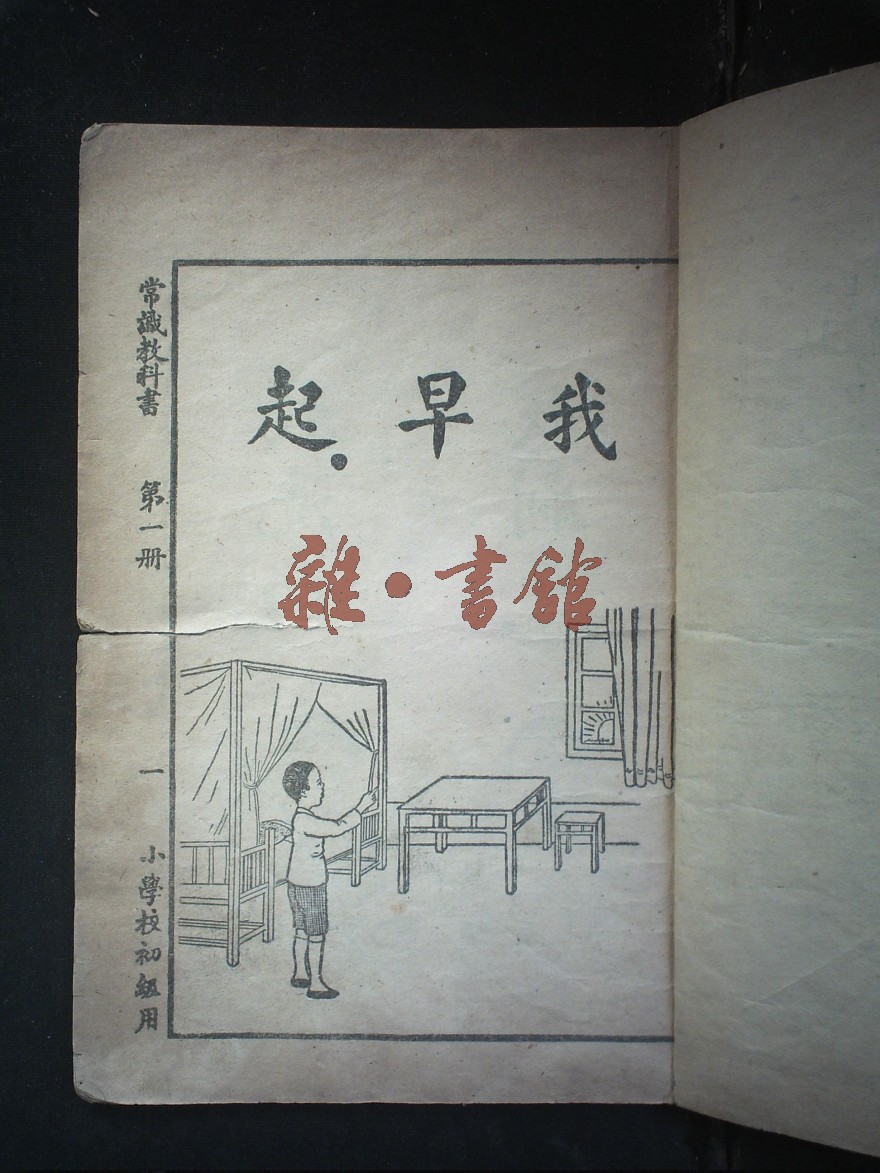 我早起.
雜·書館
常識教科書 第一册 一 小學校初級用